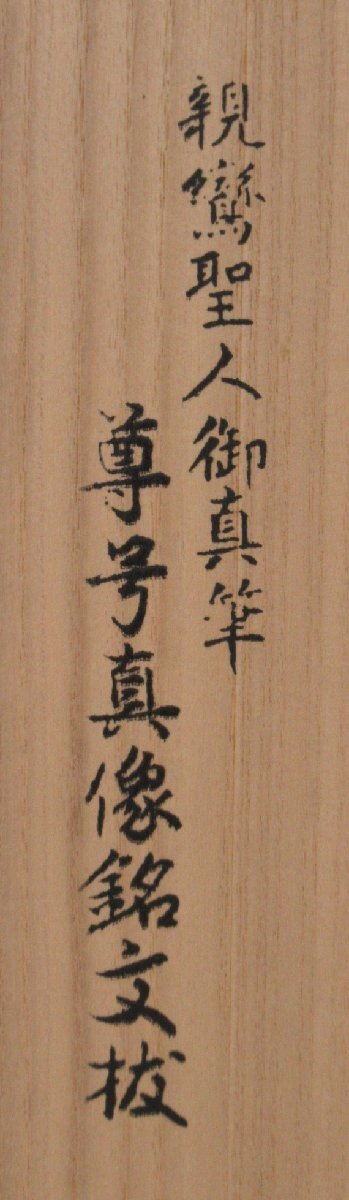 親鸞聖人御真筆
尊号真像銘文抜